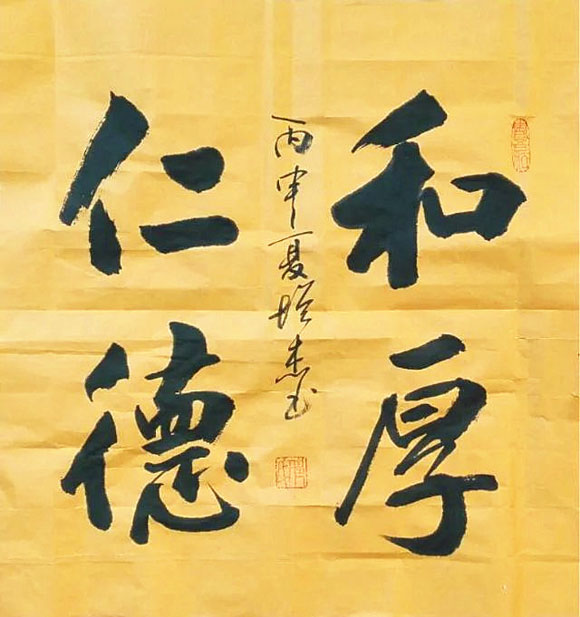 和厚
仁德
丙申夏增杰书